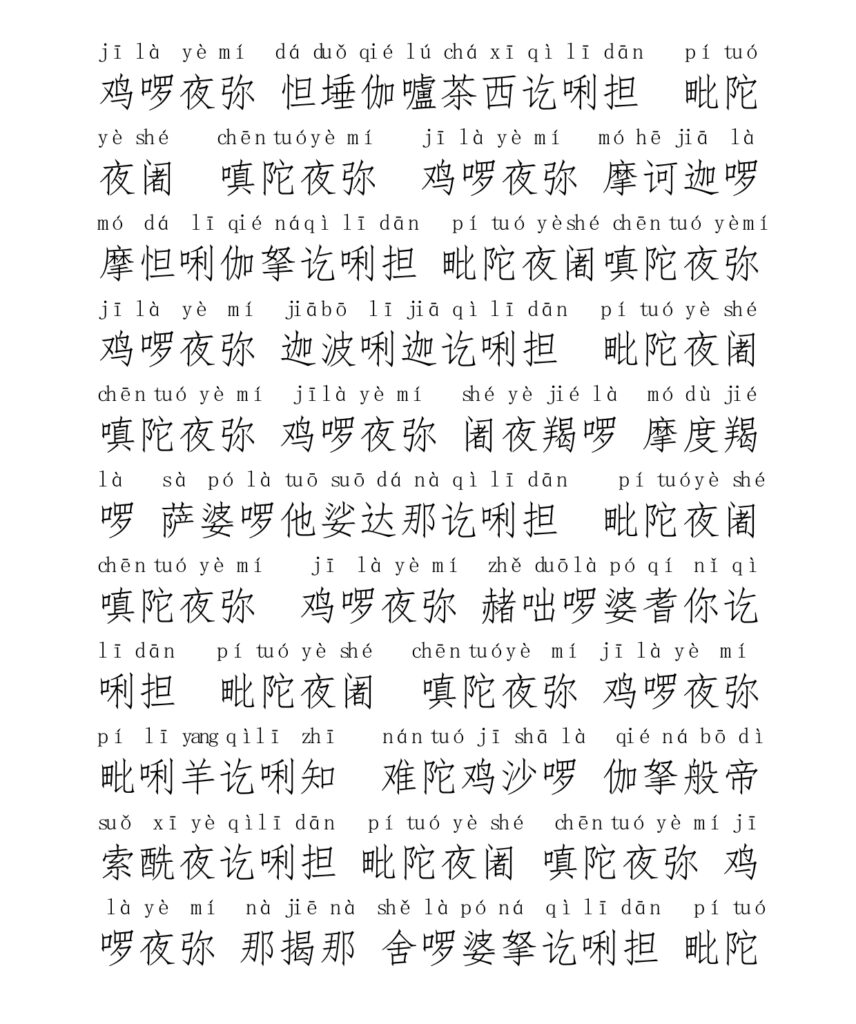 jī là yè mí dá duǒ qié lú chá xī qì lī dān pí tuó
鸡啰夜弥 怛埵伽嚧茶西讫唎担 毗陀
yè shé chēn tuó yè mí jī là yè mí mó hē jiā là
夜阇 嗔陀夜弥 鸡啰夜弥 摩诃迦啰
mó dá lī qié ná qì lī dān pí tuó yè shé chēn tuó yè mí
摩怛唎伽拏讫唎担 毗陀夜阇嗔陀夜弥
jī là yè mí jiā bō lī jiā qì lī dān pí tuó yè shé
鸡啰夜弥 迦波唎迦讫唎担 毗陀夜阇
chēn tuó yè mí jī là yè mí shé yè jié là mó dù jié
嗔陀夜弥 鸡啰夜弥 阇夜羯啰 摩度羯
là sà pó là tuō suō dá nà qì lī dān pí tuó yè shé
啰 萨婆啰他娑达那讫唎担 毗陀夜阇
chēn tuó yè mí jī là yè mí zhě duō là pó qí nǐ qì
嗔陀夜弥 鸡啰夜弥 赭咄啰婆耆你讫
lī dān pí tuó yè shé chēn tuó yè mí jī là yè mí
唎担 毗陀夜阇 嗔陀夜弥 鸡啰夜弥
pí lī yang qì lī zhī nán tuó jī shā là qié ná bō dì
毗唎羊讫唎知 难陀鸡沙啰 伽拏般帝
suǒ xī yè qì lī dān pí tuó yè shé chēn tuó yè mí jī
索酰夜讫唎担 毗陀夜阇 嗔陀夜弥 鸡
là yè mí nà jiē nà shě là pó ná qì lī dān pí tuó
啰夜弥 那揭那 舍啰婆拏讫唎担 毗陀